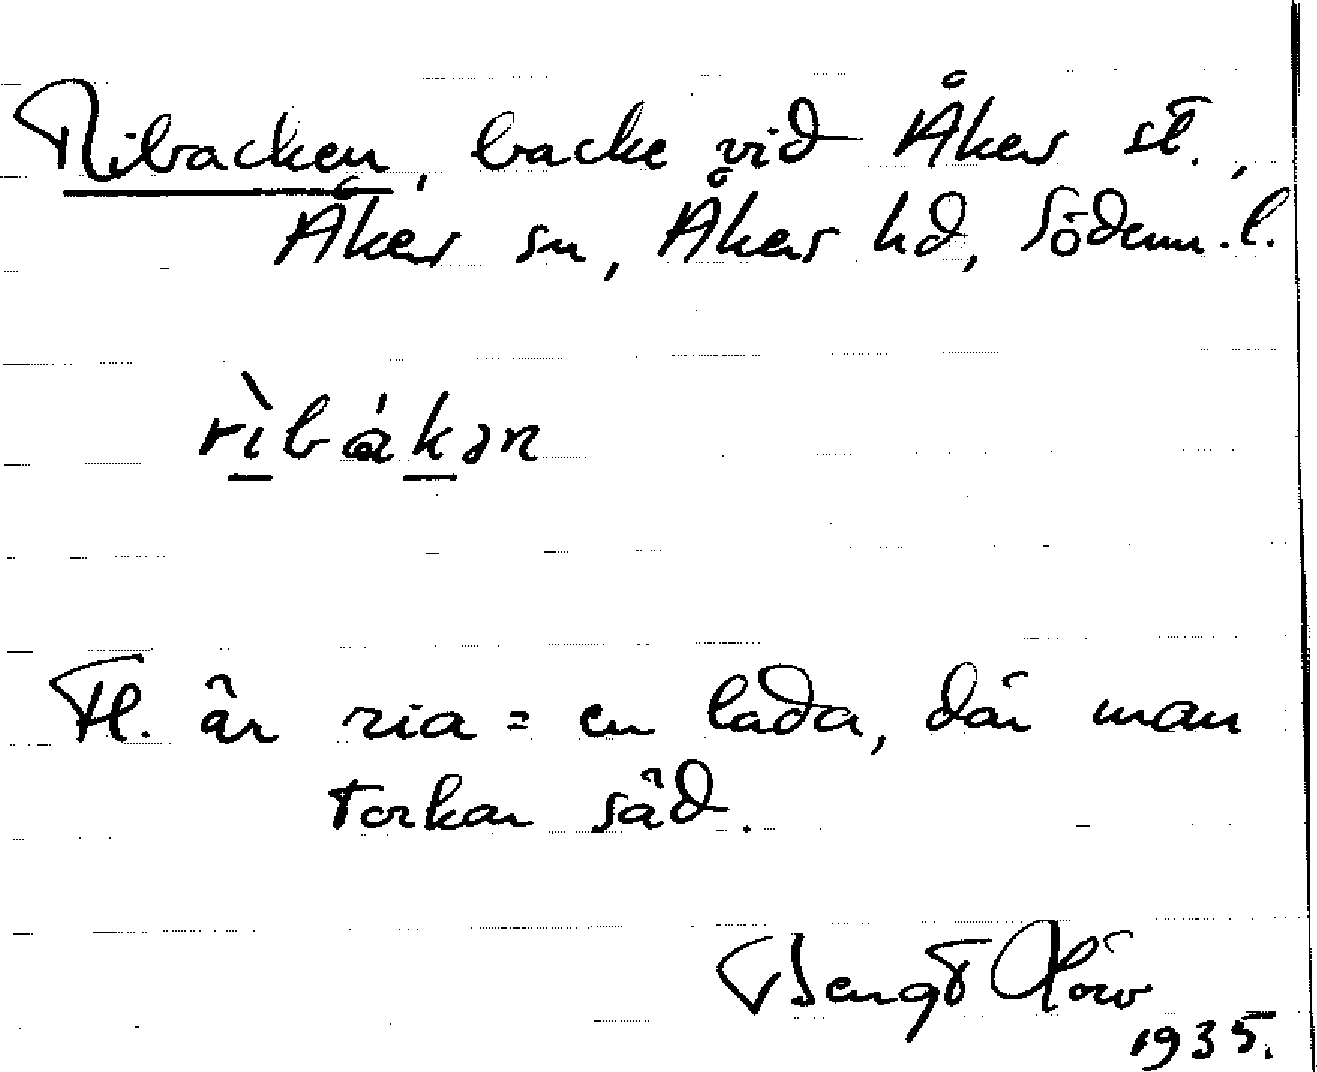 Ribacken, backe vid Åkers st.,
Åkers sn, Åkers hd, Söderm.l.
rìbákən
Fl. är ria = en lada, där man
torkar säd.
Bengt
1935.